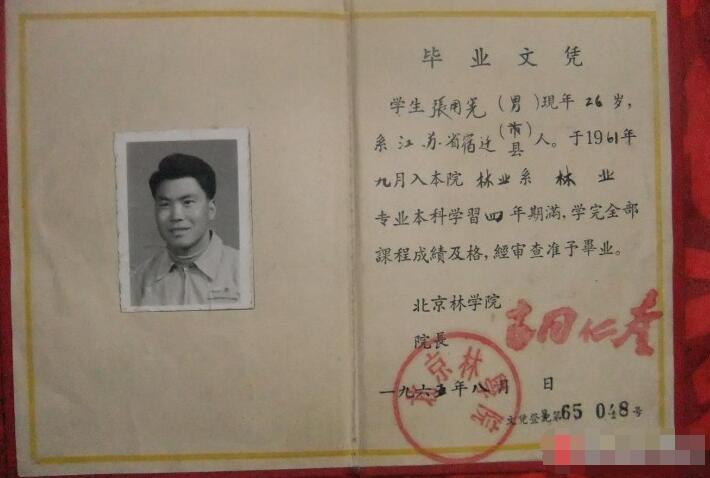 毕业文凭
学生張用宪(男)現年26岁，
系江苏省宿迁(市县)人。于1961年
九月入本院林业系林业
专业本科学習四年期滿，学完全部
課程成績及格，經审查准予畢业。
北京林学院
院長
一九六五年八月 日
文凭登记第65 048号
北京林學院